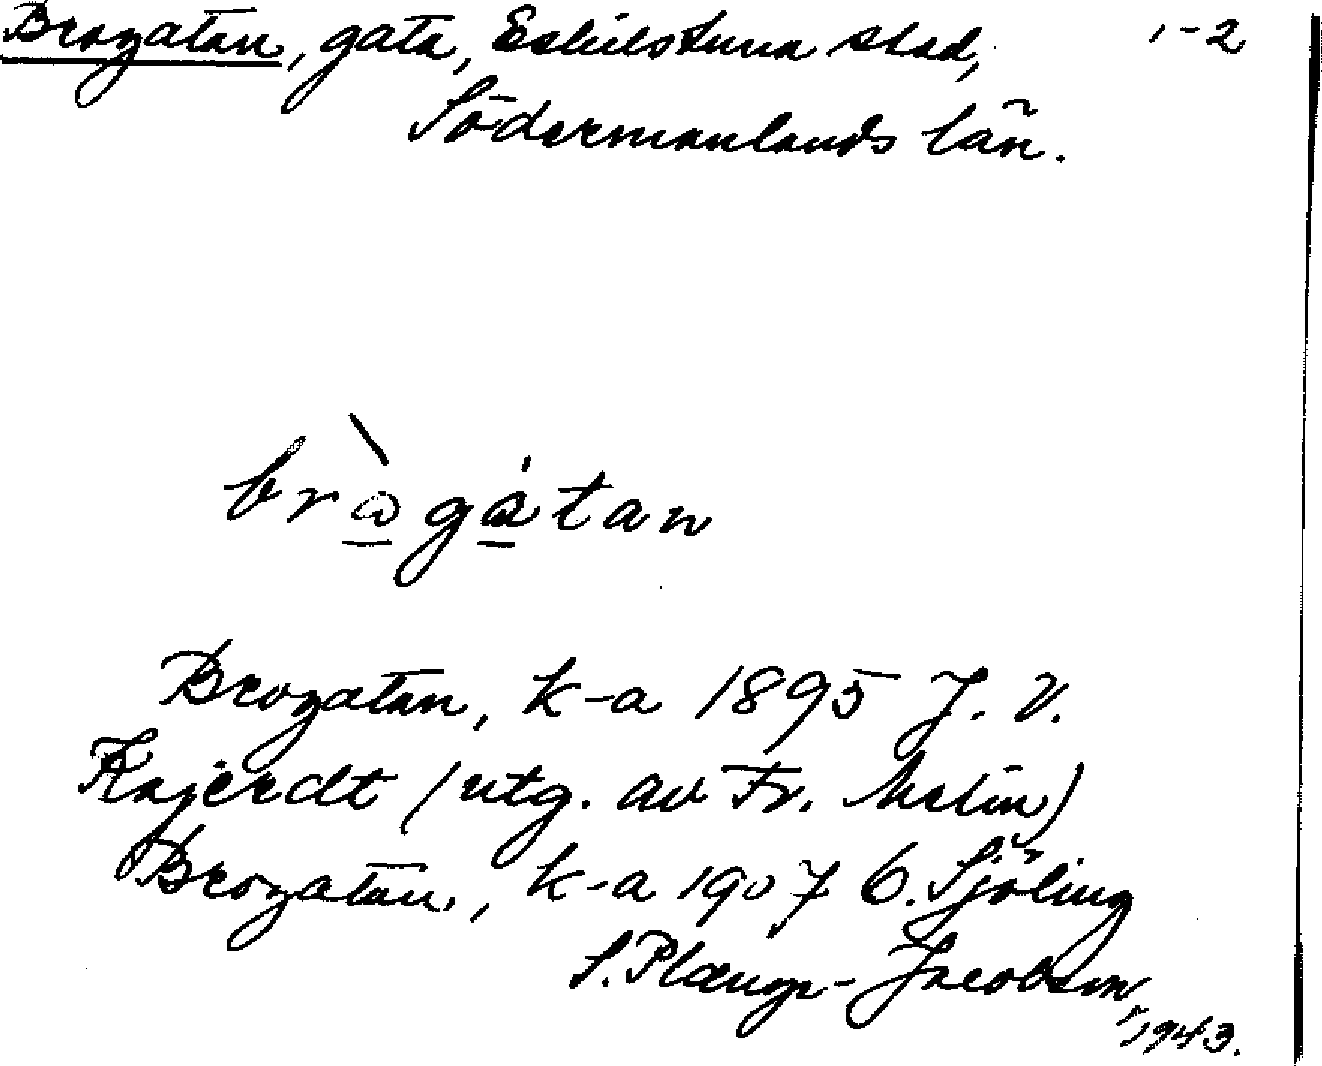 Brogatan, gata, Eskilstuna stad, 1-2
Södermanlands län.
brògàtan
Brogatan, k-a 1895 J. V.
Knjerdt (utg. av Fr. Melin)
Brogatan, k-a 1907 C. Sjöling
S. Plaump-Jacobson,
1943.